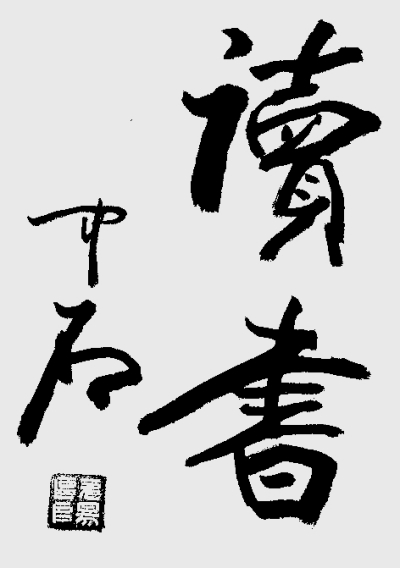 讀書
中石